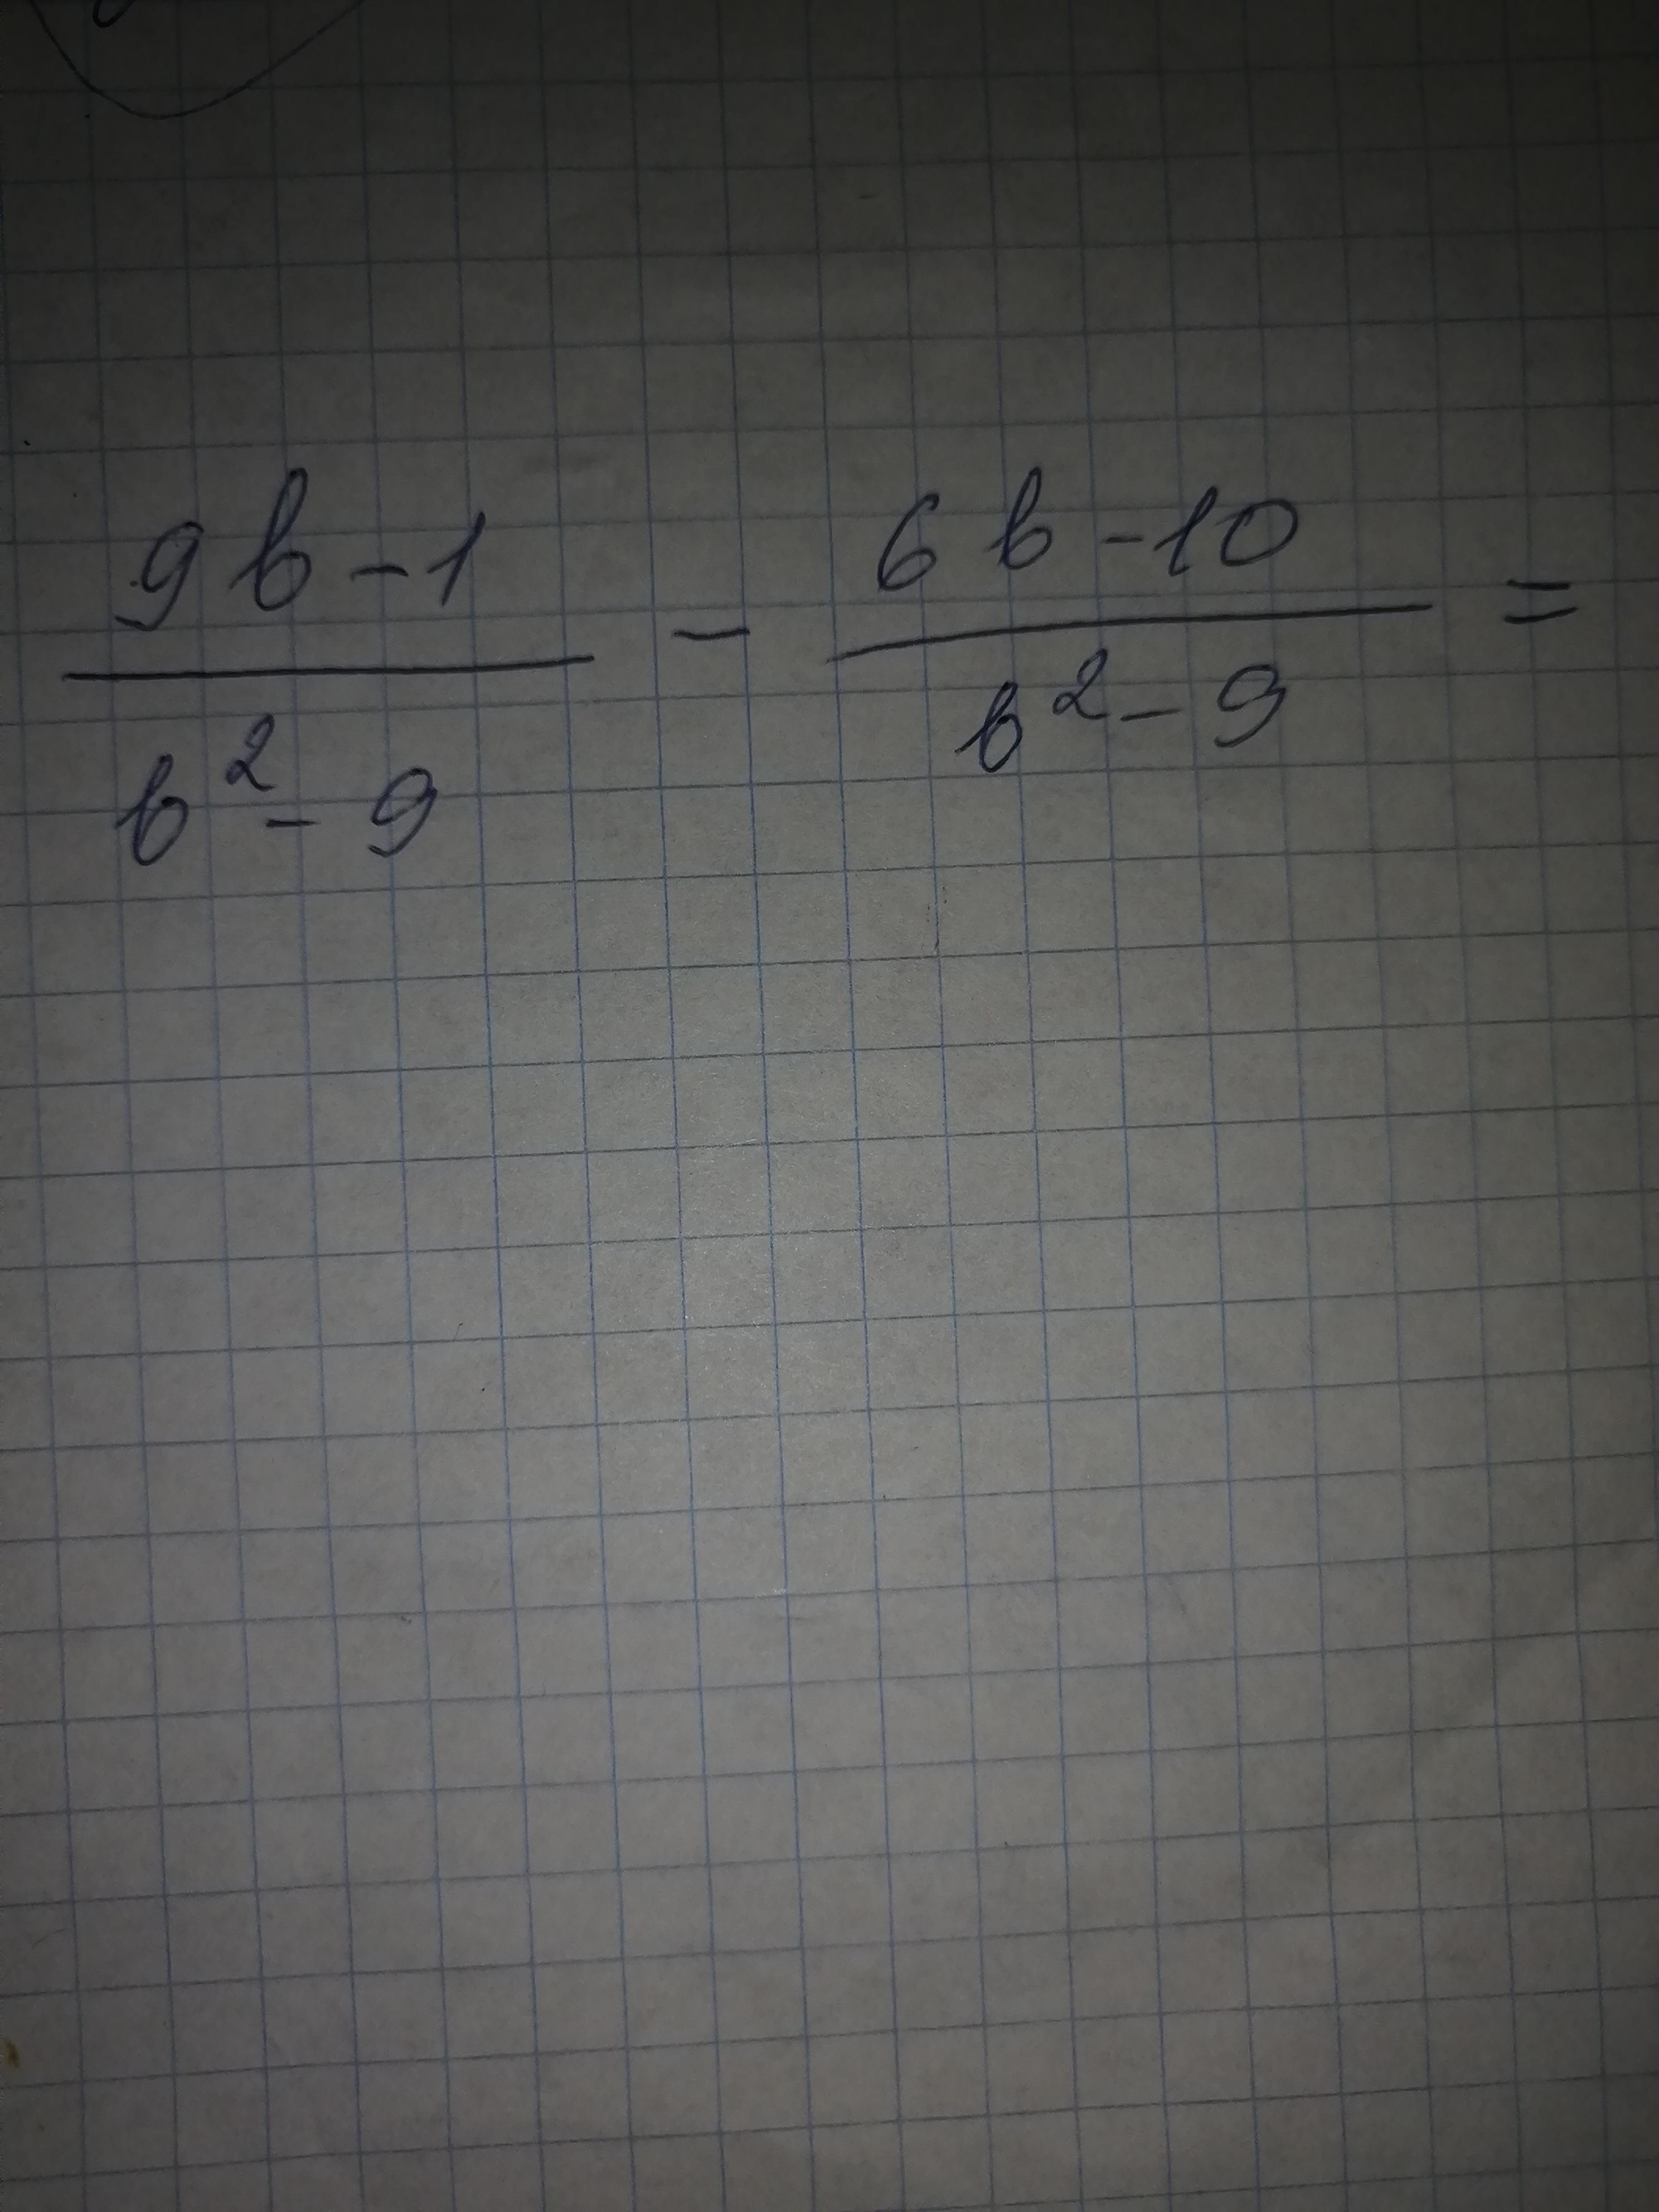 9b-1/b²-9 - 6b-10/b²-9 =